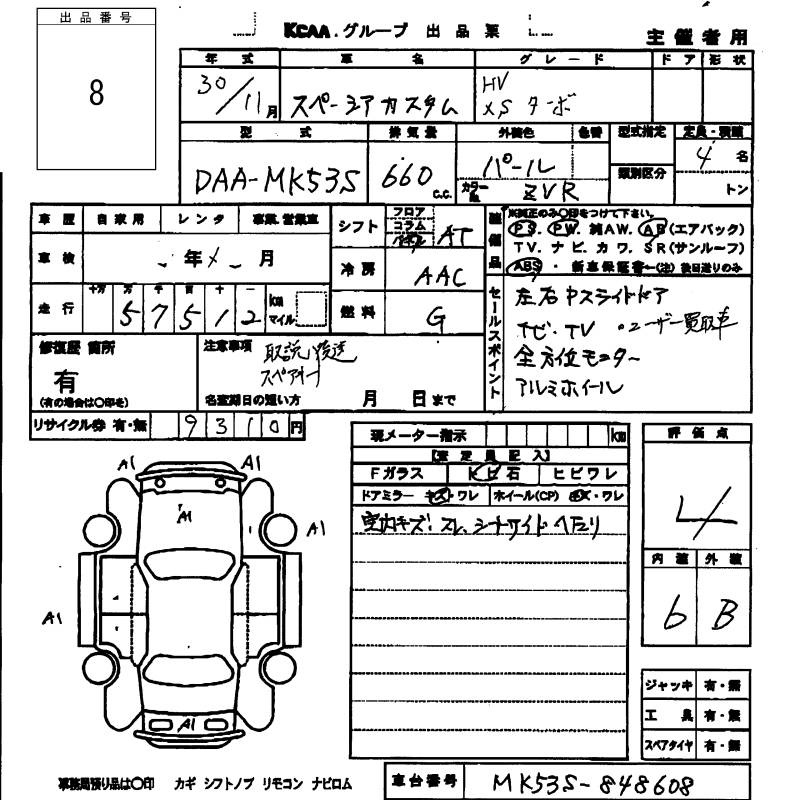 出品番号
8
KCAA.グループ 出品票
主催者用
年式 車名 グレード ドア 形状
30/11月 スペーシアカスタム HV XSターボ
型式 排気量 外装色 色番 型式指定 定員・積載
DAA-MK53S 660 c.c. パール 類別区分 4名
カラーNo. ZVR トン
車歴 自家用 レンタ 事業、営業車
シフト フロア コラム AT
車検 年 月
冷房 AAC
走行 十万 万 千 百 十 一 km マイル
57512
燃料 G
装備品
※純正のみ○印をつけて下さい。
PS. PW. 純AW. AB(エアバック)
TV. ナビ. カワ. SR(サンルーフ)
ABS ・ 新車保証書←(注)後日送りのみ
セールスポイント
左右Pスライドドア
ナビ・TV ・ユーザー買取車
全方位モニター
アルミホイール
修復歴 箇所
有
(有の場合は○印を)
注意事項 取説、後送
スペアキー
名変期日の短い方 月 日まで
リサイクル券 有・無 9310円
現メーター指示 km
【査定員記入】
Fガラス トビ石 ヒビワレ
ドアミラー キズ・ワレ ホイール(CP) キズ・ワレ
室内キズ、スレ、シートサイドヘタリ
評価点
4
内装 外装
6 B
A1 A1
A1
A1
A1
A1
ジャッキ 有・無
工具 有・無
スペアタイヤ 有・無
事務局預り品は○印 カギ シフトノブ リモコン ナビロム
車台番号 MK53S-848608